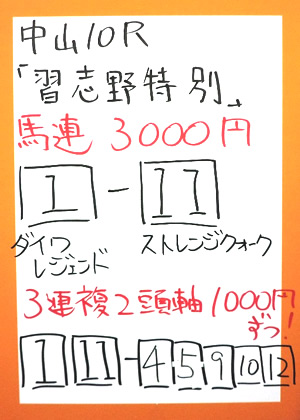 中山10R
「習志野特別」
馬連 3000円
1-11
ダイワレジェンド ストレンジクォーク
3連複2頭軸1000円
ずつ!
1 11-4 5 9 10 12